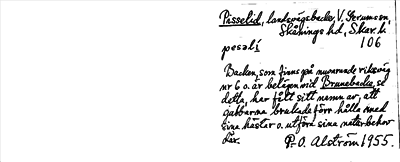 Pisselid, landsvägsbacke, V. Gerumssn,
Skånings hd, Skar. l.
106
pesalí
Backen, som finns på nuvarande riksväg
nr 6 o. är belägen vid Brunebacke, se
detta, har fått sitt namn av, att
gubbarna brukade förr hålla med
sina hästar o. utföra sina naturbehov
där.
P. O. Alström 1955.